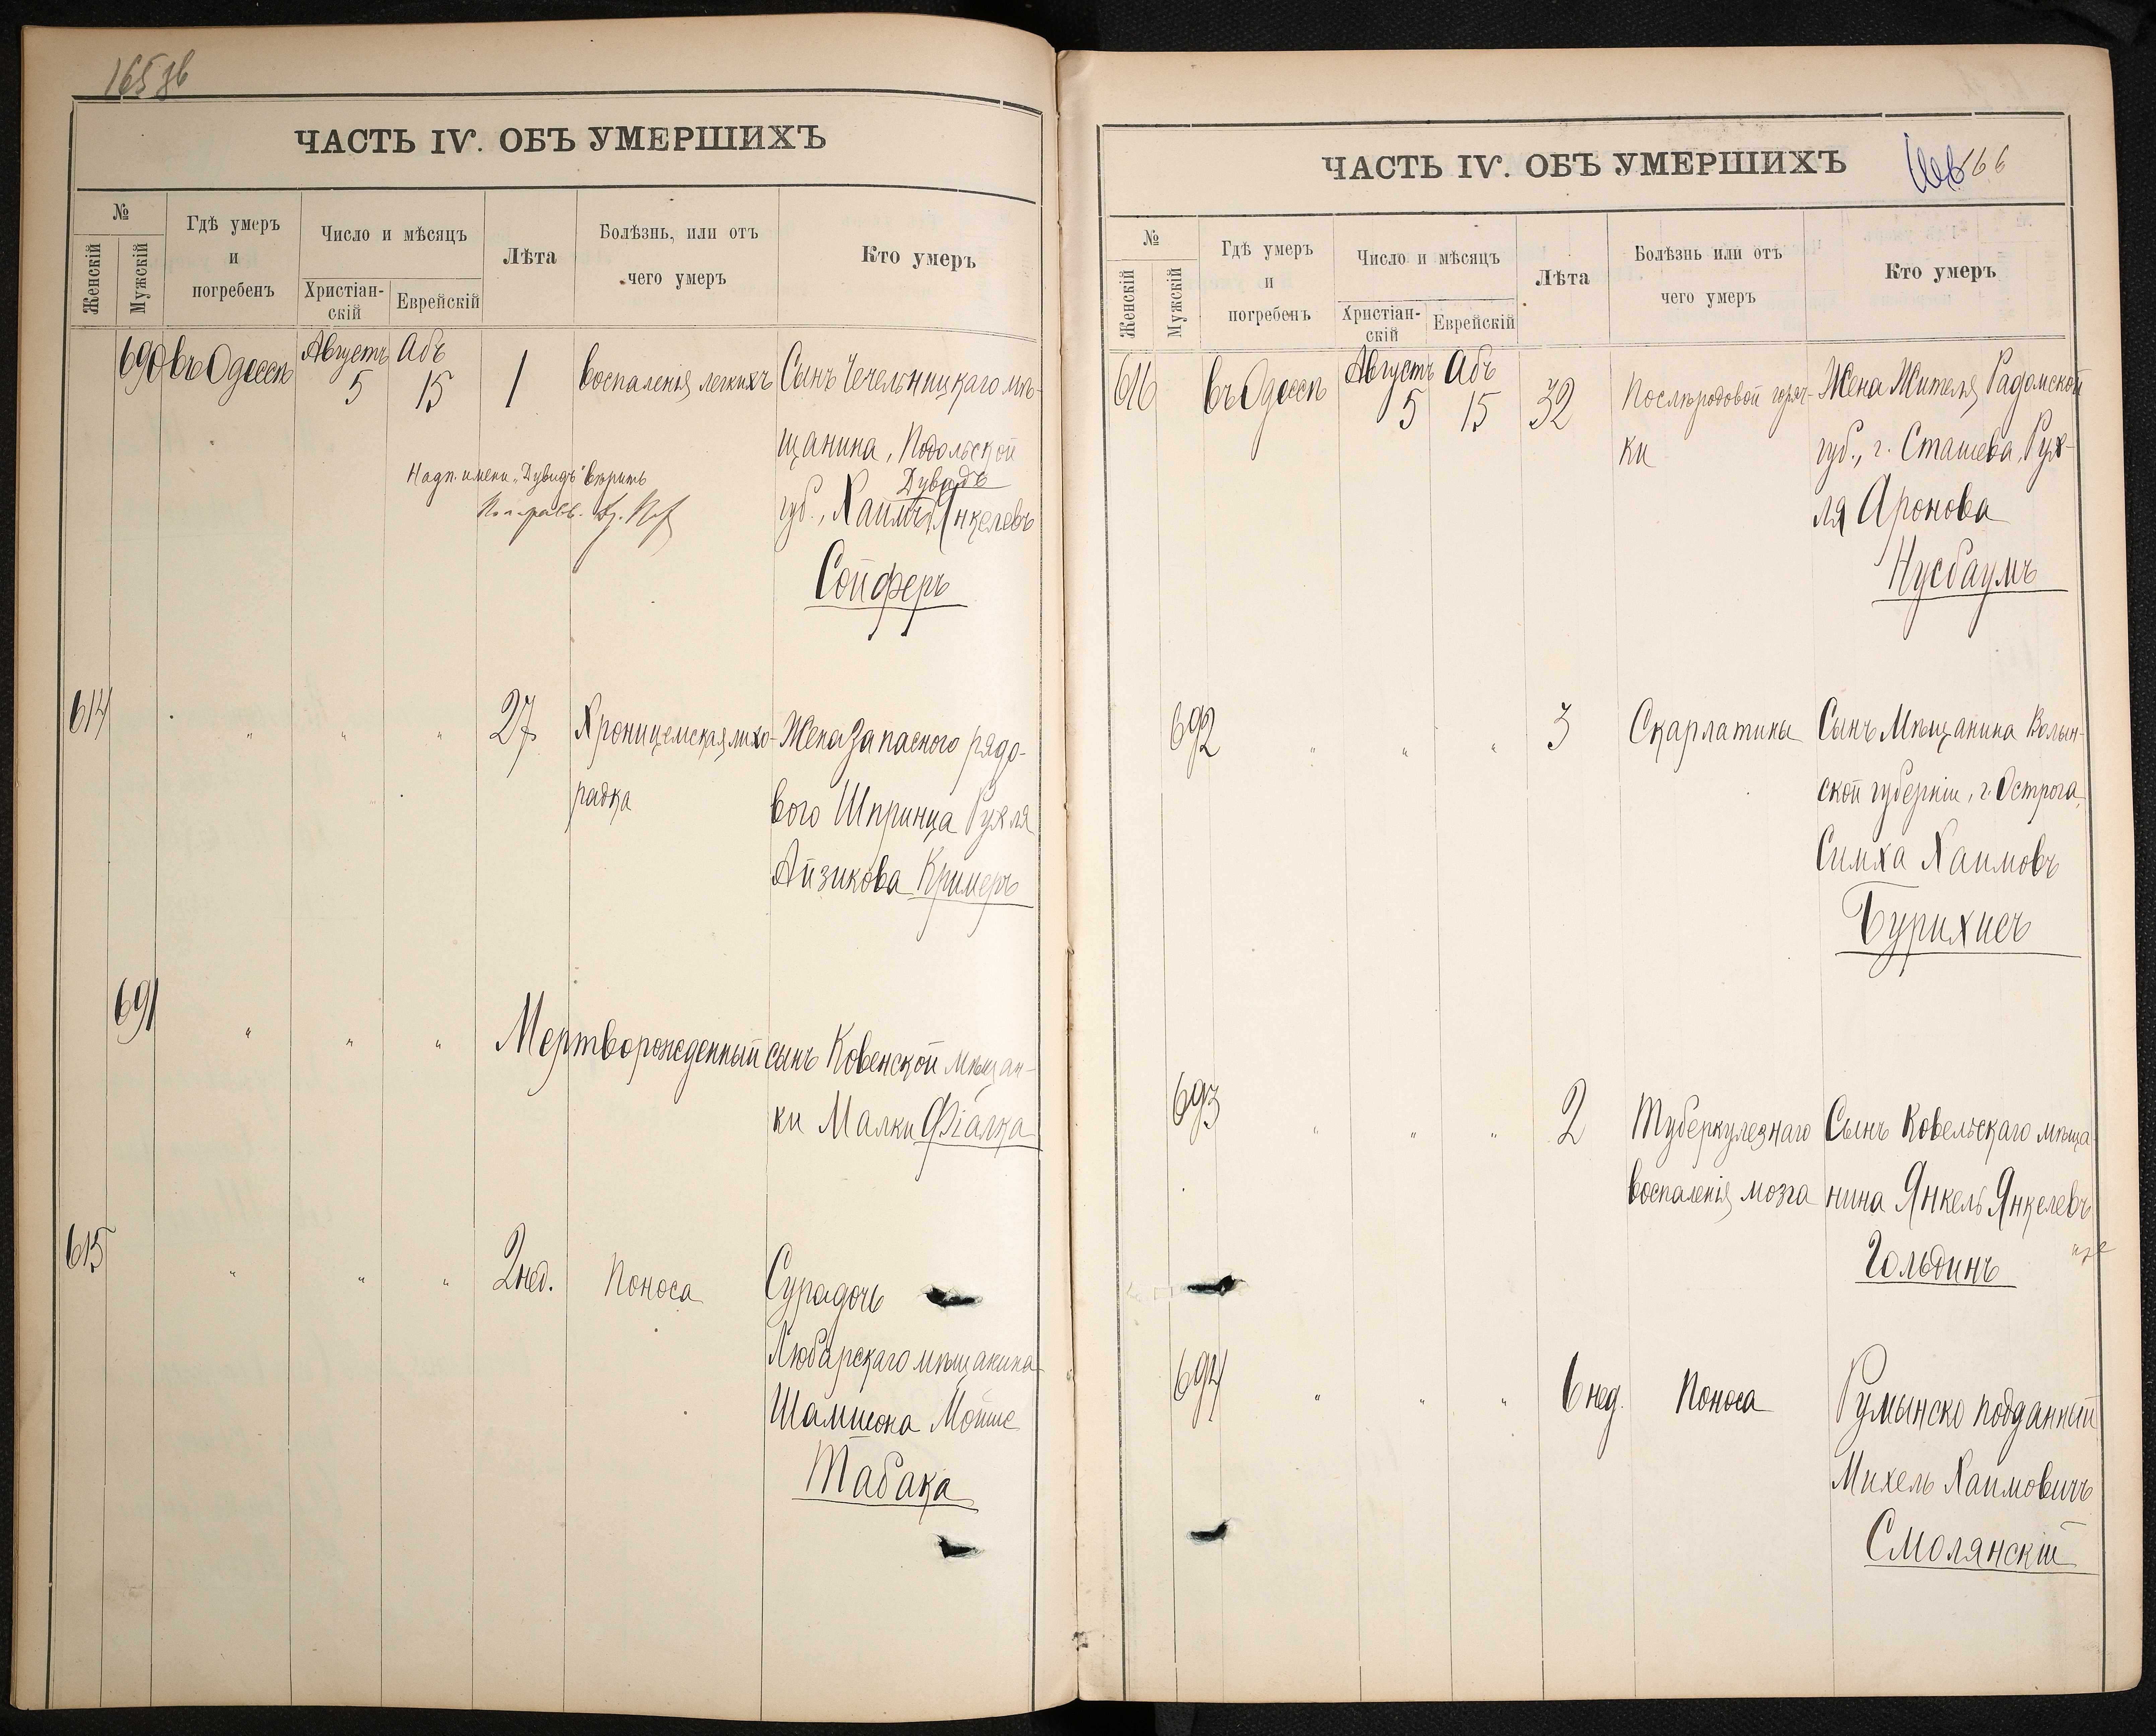 165 зв
ЧАСТЬ IV. ОБЪ УМЕРШИХЪ
№
Женскій
Мужскій
Гдѣ умеръ
и
погребенъ
Число и мѣсяцъ
Христіан-
скій
Еврейскій
Лѣта
Болѣзнь, или отъ
чего умеръ
Кто умеръ
690 въ Одессѣ Августъ 5 Абъ 15 1 воспаленія легкихъ Сынъ Чечельницкаго мѣ-
щанина, Подольской
Дувидъ
губ., Хаимъ Янкелевъ
Надп. имени „Дувидъ" вѣрить
Сойферъ
614 „ „ „ 27 Хроническая лихо- Жена Запасного рядо-
радка вого Шпринца Рухля
Айзикова Кримеръ
691 „ „ „ Мертворожденный сынъ Ковенской мѣщан-
ки Малки Фіалка
615 „ „ „ 2 нед. Поноса Сура дочь
Любарскаго мѣщанина
Шамшона Мойше
Табака
ЧАСТЬ IV. ОБЪ УМЕРШИХЪ
166
№
Женскій
Мужскій
Гдѣ умеръ
и
погребенъ
Число и мѣсяцъ
Христіан-
скій
Еврейскій
Лѣта
Болѣзнь или отъ
чего умеръ
Кто умеръ
616 въ Одессѣ Августъ 5 Абъ 15 32 Послѣродовой горяч- Жена Жителя Радомской
ки губ., г. Сташева, Рух-
ля Аронова
Нусбаумъ
692 „ „ „ 3 Скарлатины Сынъ Мѣщанина Волын-
ской губерніи, г. Острога,
Симха Хаимовъ
Бурихисъ
693 „ „ „ 2 Туберкулезнаго Сынъ Ковельскаго мѣща
воспаленія мозга нина Янкель Янкелевъ
Гольдинъ
694 „ „ „ 6 нед. Поноса Румынско подданный
Михель Хаимовичъ
Смолянскій